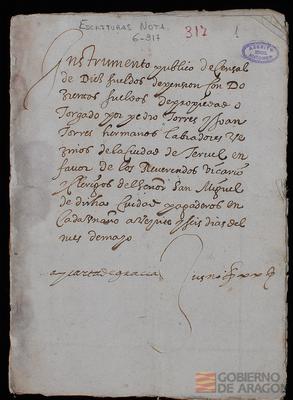 ESCRITURAS NOTA
6-317
317
1
Instrumento publico de Censal
de Diez sueldos de pension con Do
zientos sueldos de propiedad o
Torgado por pedro Torres y Joan
Torres hermanos labradores Ve
zinos de la Ciudad de Teruel en
favor de los Reverendos Vicario
y Clerigos del Señor San Miguel
de dicha Ciudad pagaderos en
Cada un año a veynte y seis dias del
mes de mayo
ay carta de gracia
GOBIERNO
DE ARAGON